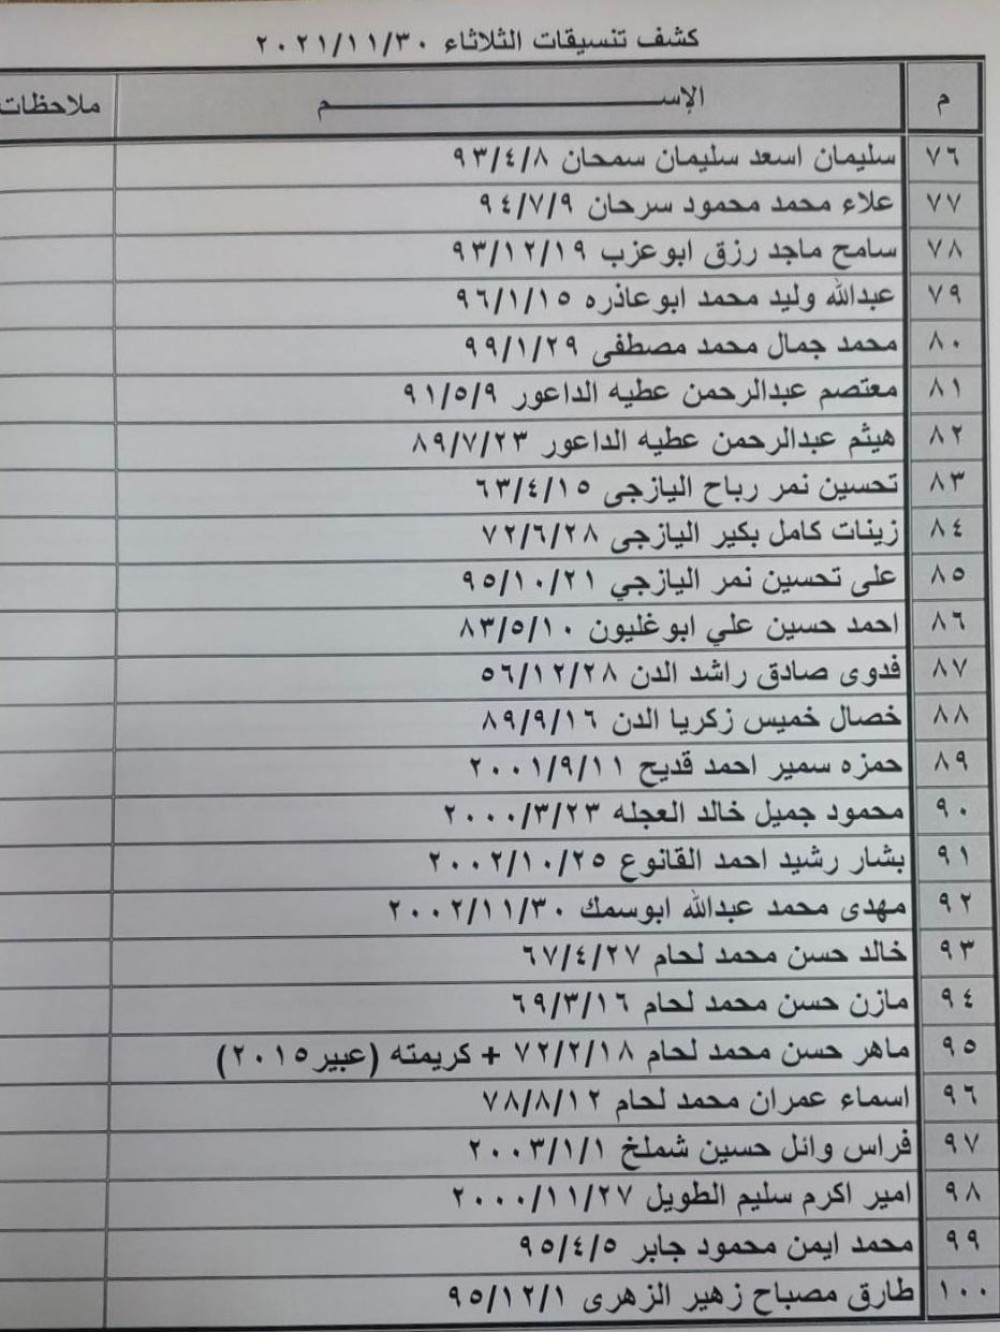 كشف تنسيقات الثلاثاء ٢٠٢١/١١/٣٠
م الإســــــــم ملاحظات
٧٦ سليمان اسعد سليمان سمحان ٩٣/٤/٨
٧٧ علاء محمد محمود سرحان ٩٤/٧/٩
٧٨ سامح ماجد رزق ابوعزب ٩٣/١٢/١٩
٧٩ عبدالله وليد محمد ابوعاذره ٩٦/١/١٥
٨٠ محمد جمال محمد مصطفى ٩٩/١/٢٩
٨١ معتصم عبدالرحمن عطيه الداعور ٩١/٥/٩
٨٢ هيثم عبدالرحمن عطيه الداعور ٨٩/٧/٢٣
٨٣ تحسين نمر رباح اليازجى ٦٣/٤/١٥
٨٤ زينات كامل بكير اليازجى ٧٢/٦/٢٨
٨٥ على تحسين نمر اليازجي ٩٥/١٠/٢١
٨٦ احمد حسين علي ابوغليون ٨٣/٥/١٠
٨٧ فدوى صادق راشد الدن ٥٦/١٢/٢٨
٨٨ خصال خميس زكريا الدن ٨٩/٩/١٦
٨٩ حمزه سمير احمد قديح ٢٠٠١/٩/١١
٩٠ محمود جميل خالد العجله ٢٠٠٠/٣/٢٣
٩١ بشار رشيد احمد القانوع ٢٠٠٢/١٠/٢٥
٩٢ مهدى محمد عبدالله ابوسمك ٢٠٠٢/١١/٣٠
٩٣ خالد حسن محمد لحام ٦٧/٤/٢٧
٩٤ مازن حسن محمد لحام ٦٩/٣/١٦
٩٥ ماهر حسن محمد لحام ٧٢/٢/١٨ + كريمته (عبير٢٠١٥)
٩٦ اسماء عمران محمد لحام ٧٨/٨/١٢
٩٧ فراس وائل حسين شملخ ٢٠٠٣/١/١
٩٨ امير اكرم سليم الطويل ٢٠٠٠/١١/٢٧
٩٩ محمد ايمن محمود جابر ٩٥/٤/٥
١٠٠ طارق مصباح زهير الزهرى ٩٥/١٢/١